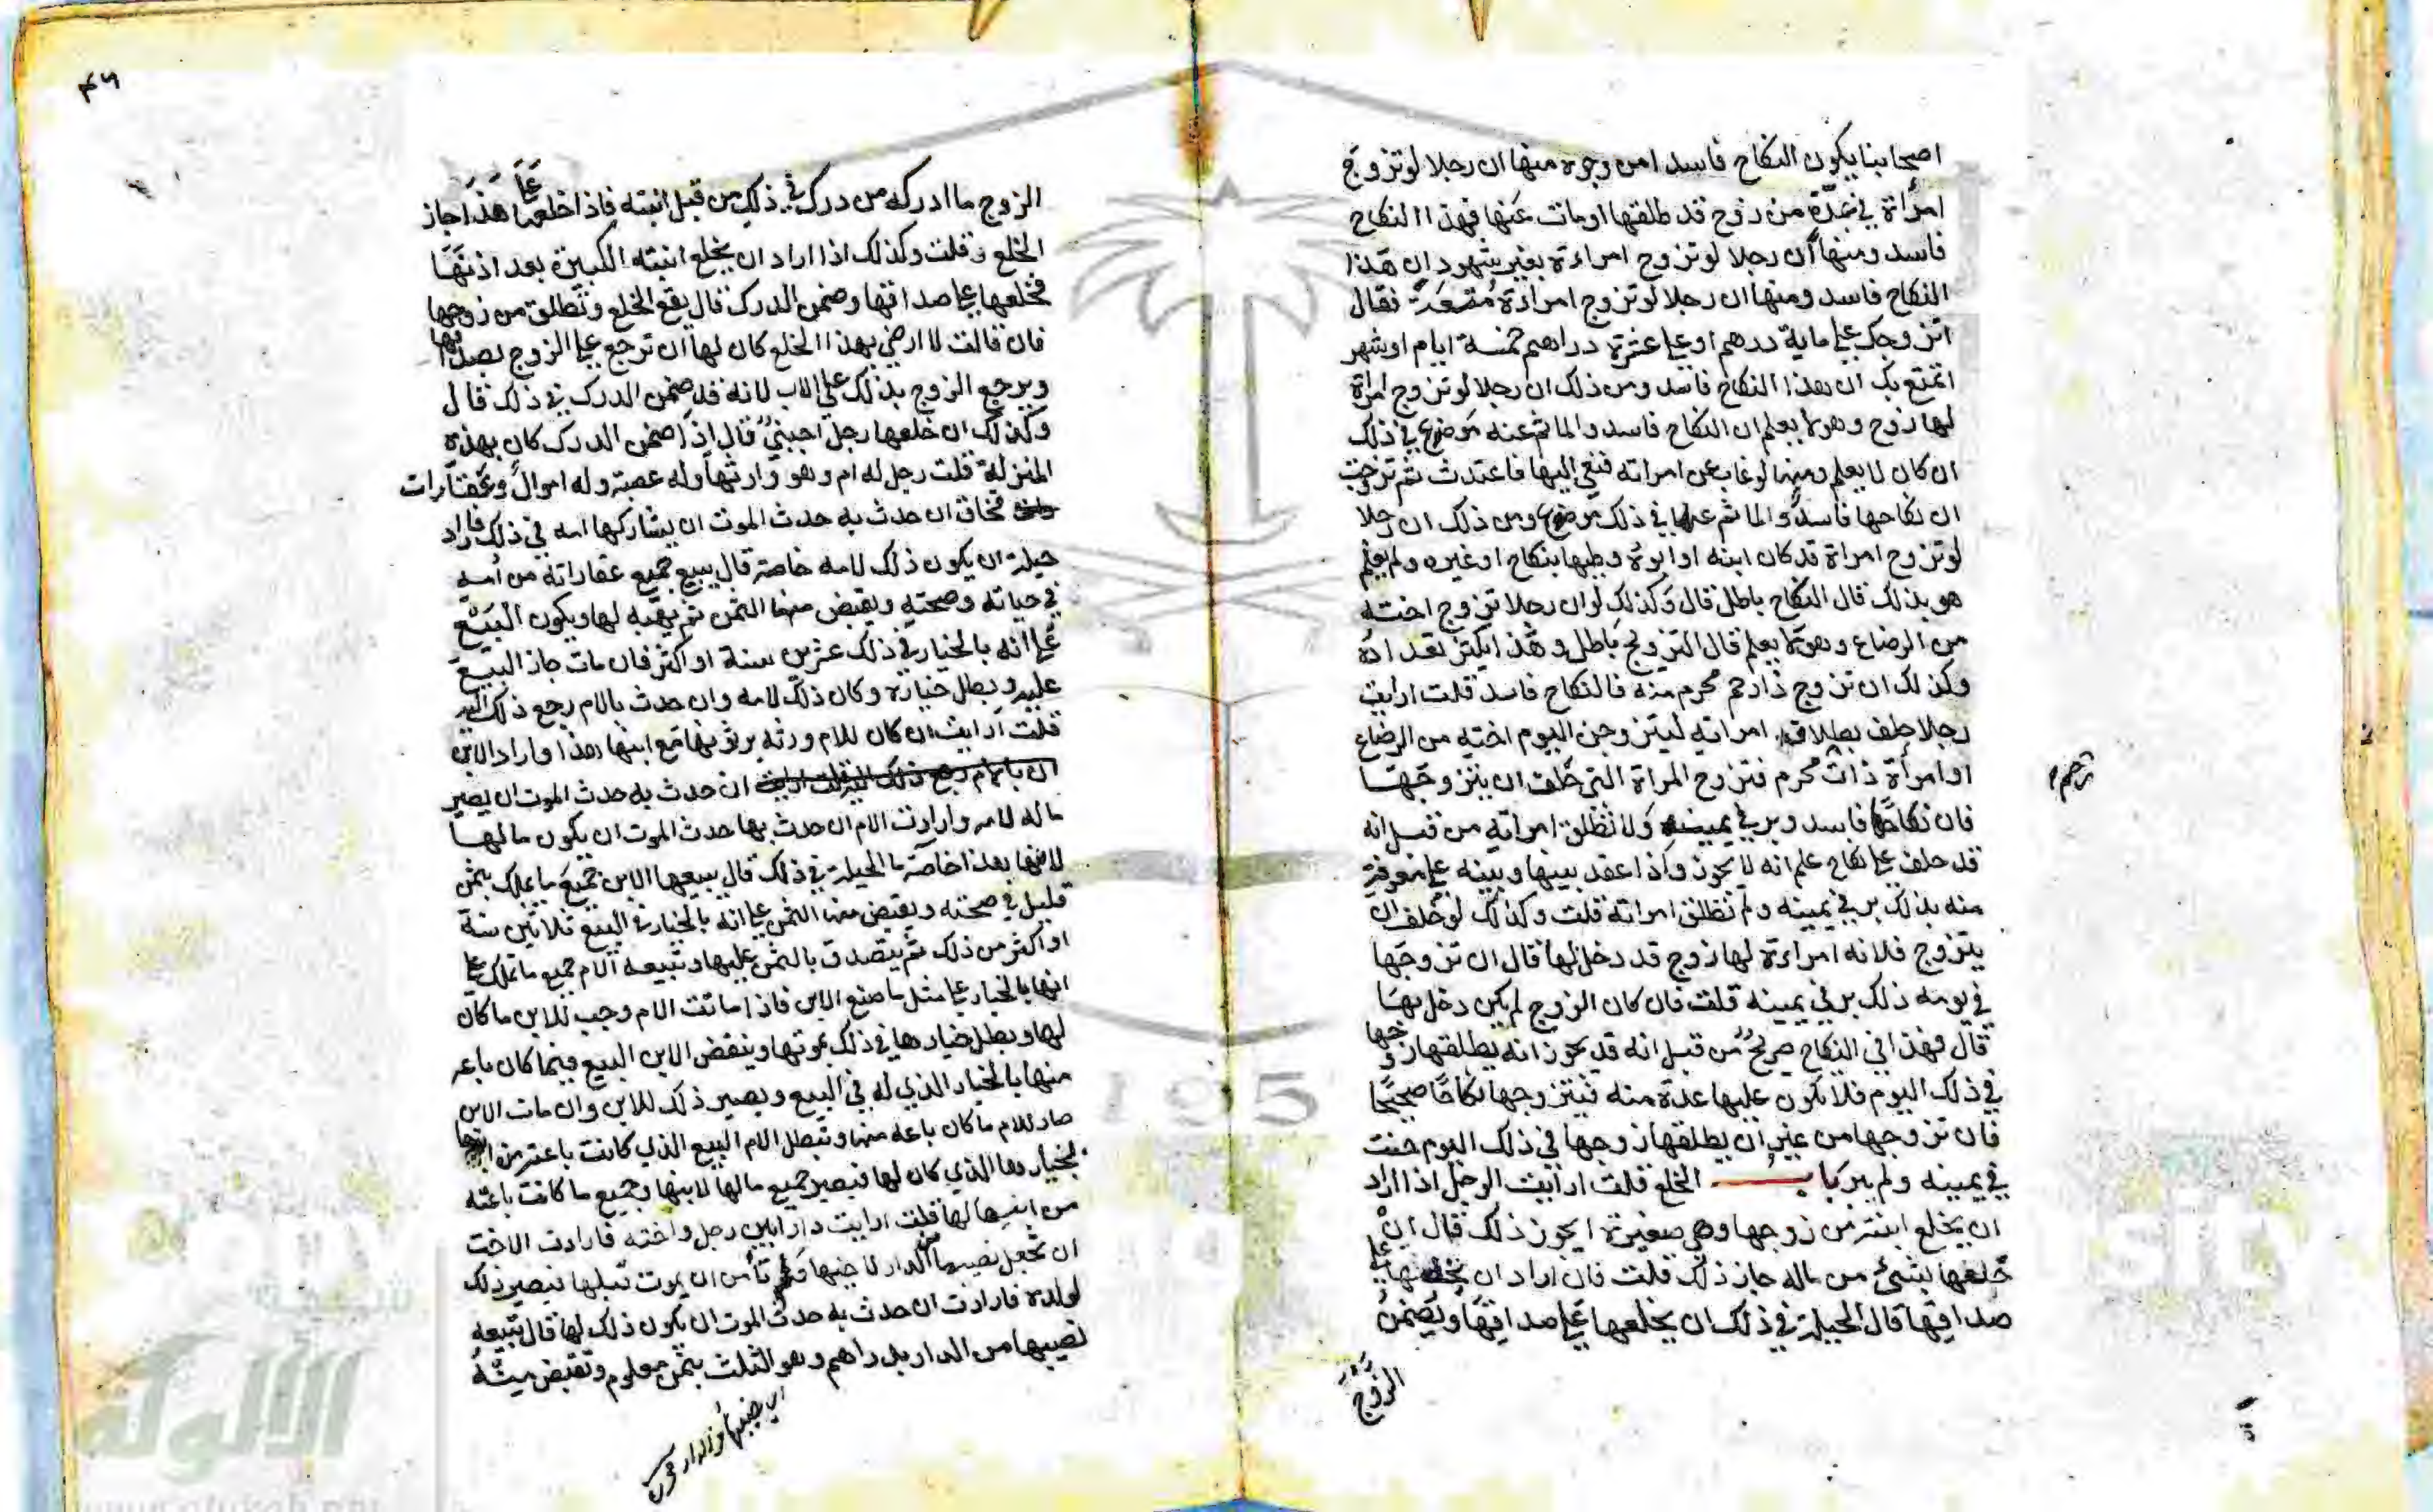 اصحابنا يكون النكاح فاسدا من وجوه منها ان رجلا لو تزوج
امرأة في عدة من زوج قد طلقها او مات عنها فهذا النكاح
فاسد ومنها أن رجلا لو تزوج امراءة بغير شهود ان هذا
النكاح فاسد ومنها ان رجلا لو تزوج امراءة متعة فقال
اتزوجك على ماية درهم او على عشرة دراهم خمسة ايام او شهر
اتمتع بك ان هذا النكاح فاسد ومن ذلك ان رجلا لو تزوج امراة
لها زوج وهو لا يعلم ان النكاح فاسد والماثم عنه موضوع في ذلك
ان كان لا يعلم ومنها لو غاب عن امراته فنعي اليها فاعتدت ثم تزوجت
ان نكاحها فاسد والماثم عليها في ذلك موضوع ومن ذلك ان رجلا
لو تزوج امراة قد كان ابنه او ابوه وطيها بنكاح او غيره ولم يعلم
هو بذلك قال النكاح باطل قال وكذلك لو ان رجلا تزوج اخته
من الرضاع وهو لا يعلم قال التزويج باطل وهذا يكثر تعداده
وكذلك ان تزوج ذا رحم محرم منه فالنكاح فاسد قلت ارايت
رجلا حلف بطلاق امراته ليتزوجن اليوم اخته من الرضاع
او امرأة ذات محرم فتزوج المراة التي حلف ان يتزوجها
فان نكاحها فاسد وبر في يمينه ولا تطلق امراته من قبل انه
قد حلف على نكاح علم انه لا يجوز واذا عقد بينها وبينه على معرفة
منه بذلك بر في يمينه ولم تطلق امراته قلت وكذلك لو حلف ان
يتزوج فلانه امراءة لها زوج قد دخل بها قال ان تزوجها
في يومه ذلك بر في يمينه قلت فان كان الزوج لم يكن دخل بها
قال فهذا في النكاح صريح من قبل انه قد يجوز انه يطلقها زوجها
في ذلك اليوم فلا يكون عليها عدة منه فيتزوجها نكاحا صحيحا
فان تزوجها من غير ان يطلقها زوجها في ذلك اليوم حنث
في يمينه ولم يبر باب الخلع قلت ارايت الرجل اذا اراد
ان يخلع ابنته من زوجها وهي صغيرة ايجوز ذلك قال ان
خلعها بشيء من ماله جاز ذلك قلت فان اراد ان يخلعها على
صداقها قال الحيلة في ذلك ان يخلعها على صداقها ويضمن
الزوج
الزوج ما ادركه من درك في ذلك من قبل ابنته فاذا خلعها على هذا جاز
الخلع قلت وكذلك اذا اراد ان يخلع ابنته الكبيرة بعد اذنها
فخلعها على صداقها وضمن الدرك قال يقع الخلع وتطلق من زوجها
فان قالت لا ارضي بهذا الخلع كان لها ان ترجع على الزوج بصداقها
ويرجع الزوج بذلك على الاب لانه قد ضمن الدرك في ذلك قال
وكذلك ان خلعها رجل اجنبي قال اذا ضمن الدرك كان بهذه
المنزلة قلت رجل له ام وهو وارثها وله عصبة وله اموال وعقارات
فخاف ان حدث به حدث الموت ان يشاركها امه في ذلك فاراد
حيلة ان يكون ذلك لامه خاصة قال يبيع جميع عقاراته من أمه
في حياته وصحته ويقبض منها الثمن ثم يهبه لها ويكون البيع
على انه بالخيار في ذلك عشرين سنة او اكثر فان مات جاز البيع
عليه وبطل خياره وكان ذلك لامه وان حدث بالام رجع ذلك اليه
قلت ارايت ان كان للام ورثه يرثونها مع ابنها هذا واراد الابن
ان حدث به حدث الموت ان يصير
ماله لامه وارادت الام ان حدث بها حدث الموت ان يكون مالها
لابنها هذا خاصة ما الحيلة في ذلك قال يبيعها الابن جميع ما يملك بثمن
قليل في صحته ويقبض منها الثمن على انه بالخيار في البيع ثلاثين سنة
او اكثر من ذلك ثم يتصدق بالثمن عليها وتبيعه الام جميع ما تملك على
انها بالخيار على مثل ما صنع الابن فاذا ماتت الام وجب للابن ما كان
لها وبطل خيارها في ذلك بموتها وينقض الابن البيع فيما كان باعه
منها بالخيار الذي له في البيع ويصير ذلك للابن وان مات الابن
صار للام ما كان باعه منها وتبطل الام البيع الذي كانت باعته من ابنها
بخيارها الذي كان لها فيصير جميع مالها لابنها وجميع ما كانت باعته
من ابنها لها قلت ارايت دارا بين رجل واخته فارادت الاخت
ان تجعل نصيبها من الدار لاخيها ولم تأمن ان يموت قبلها فيصير ذلك
لولده فارادت ان حدث به حدث الموت ان يكون ذلك لها قال تبيعه
نصيبها من الدار بدراهم وهو الثلث بثمن معلوم وتقبض منه
195
الألوكة